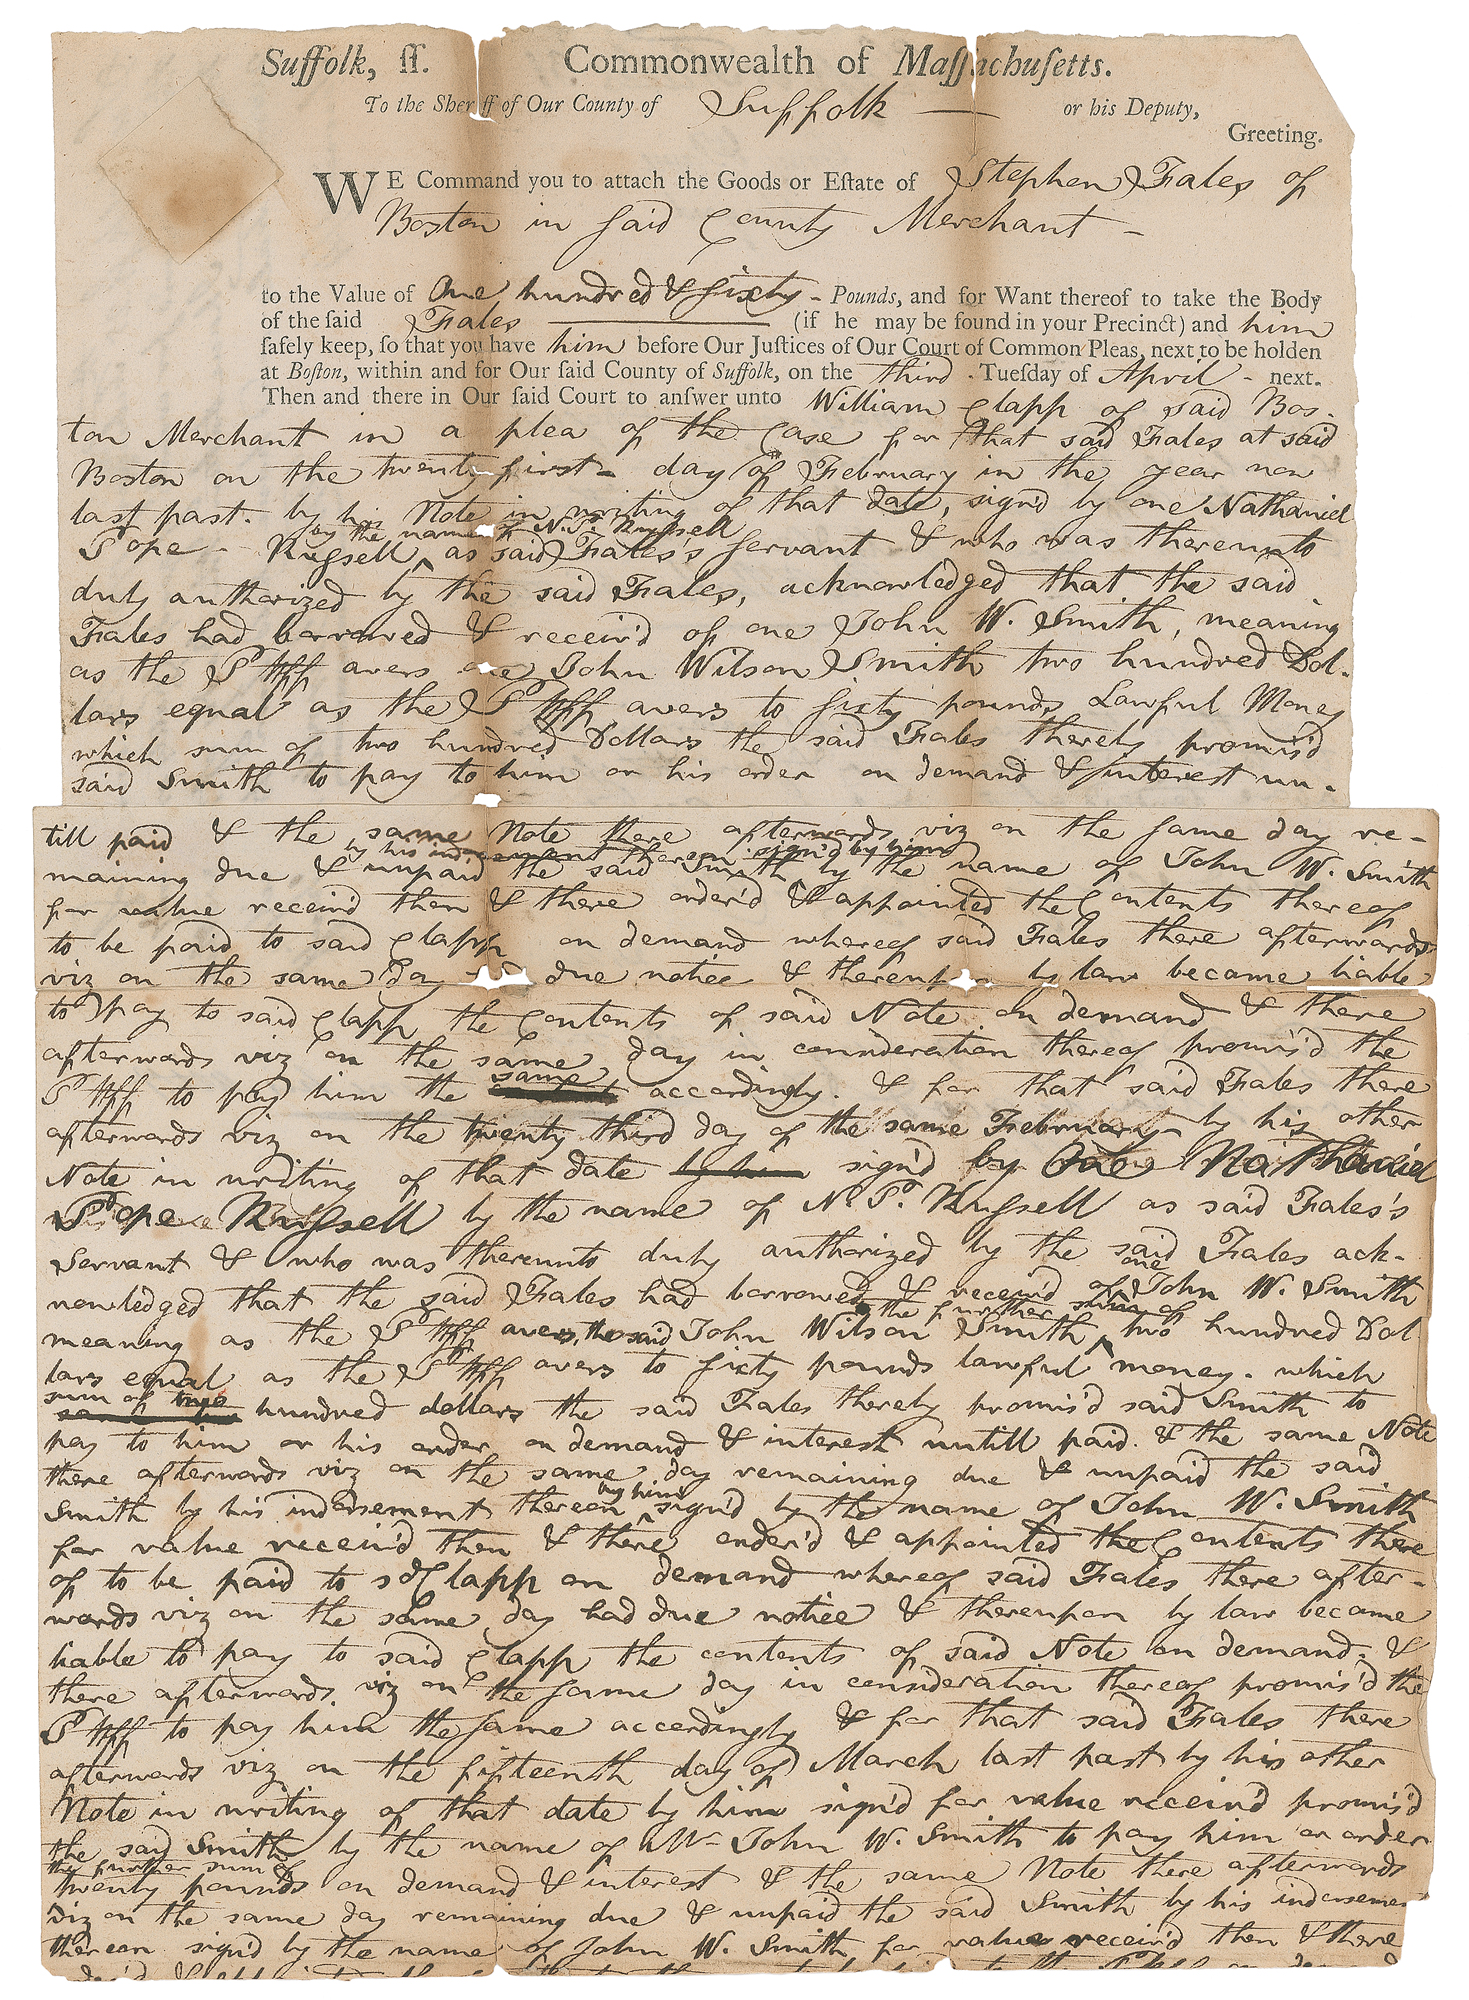 Suffolk, ſſ. Commonwealth of Maſſachuſetts.
To the Sheriff of Our County of Suffolk — or his Deputy,
Greeting.
WE Command you to attach the Goods or Eſtate of Stephen Fales of
Boston in said County Merchant —
to the Value of One hundred & sixty - Pounds, and for Want thereof to take the Body
of the ſaid Fales (if he may be found in your Precinct) and him
ſafely keep, ſo that you have him before Our Juſtices of Our Court of Common Pleas, next to be holden
at Boſton, within and for Our ſaid County of Suffolk, on the third Tueſday of April - next.
Then and there in Our ſaid Court to anſwer unto William Clapp of said Bos-
ton Merchant in a plea of the Case for that said Fales at said
Boston on the twenty first day of February in the year now
last past. by his Note in writing of that date, sign'd by one Nathaniel
by the name of N. P. Russell
Pope - Russell ^ as said Fales's servant & who was thereunto
duly authorized by the said Fales, acknowledged that the said
Fales had borrowed & receiv'd of one John W. Smith, meaning
as the Ptff avers one John Wilson Smith two hundred Dol-
lars equal as the Ptff avers to sixty pounds Lawful Money
which sum of two hundred Dollars the said Fales thereby promis'd
said Smith to pay to him or his order on demand & interest un-
till paid & the same Note there afterwards viz on the same day re-
by his indorsement thereon sign'd by him
maining due & unpaid the said Smith by the name of John W. Smith
for value receiv'd then & there order'd & appointed the Contents thereof
to be paid to said Clapp on demand whereof said Fales there afterwards
viz on the same day had due notice & thereupon by law became liable
to pay to said Clapp the Contents of said Note on demand & there
afterwards viz on the same day in consideration thereof promis'd the
same
Ptff to pay him the accordingly. & for that said Fales there
afterwards viz on the twenty third day of the same February by his other
Note in writing of that date by him sign'd by One Nathaniel
Pope Russell by the name of N. P. Russell as said Fales's
Servant & who was thereunto duly authorized by the said Fales ack-
one
nowledged that the said Fales had borrowed & receiv'd of John W. Smith
the further sum of
meaning as the Ptff avers, the said John Wilson Smith ^ two hundred Dol
lars equal as the Ptff avers to sixty pounds lawful money. which
sum of two
hundred dollars the said Fales thereby promis'd said Smith to
pay to him or his order on demand & interest untill paid. & the same Note
there afterwards viz on the same day remaining due & unpaid the said
by him
Smith by his indorsement thereon ^ sign'd by the name of John W. Smith
for value receiv'd then & there order'd & appointed the Contents there
of to be paid to sd Clapp on demand whereof said Fales there after-
wards viz on the same day had due notice & thereupon by law became
liable to pay to said Clapp the contents of said Note on demand. &
there afterwards viz on the same day in consideration thereof promis'd the
Ptff to pay him the same accordingly & for that said Fales there
afterwards viz on the fifteenth day of March last past by his other
Note in writing of that date by him sign'd for value receiv'd promis'd
the said Smith by the name of Mr John W. Smith to pay him or order
the further sum of
twenty pounds on demand & interest & the same Note there afterwards
viz on the same day remaining due & unpaid the said Smith by his indorsemen
thereon sign'd by the name of John W. Smith for value receiv'd then & there